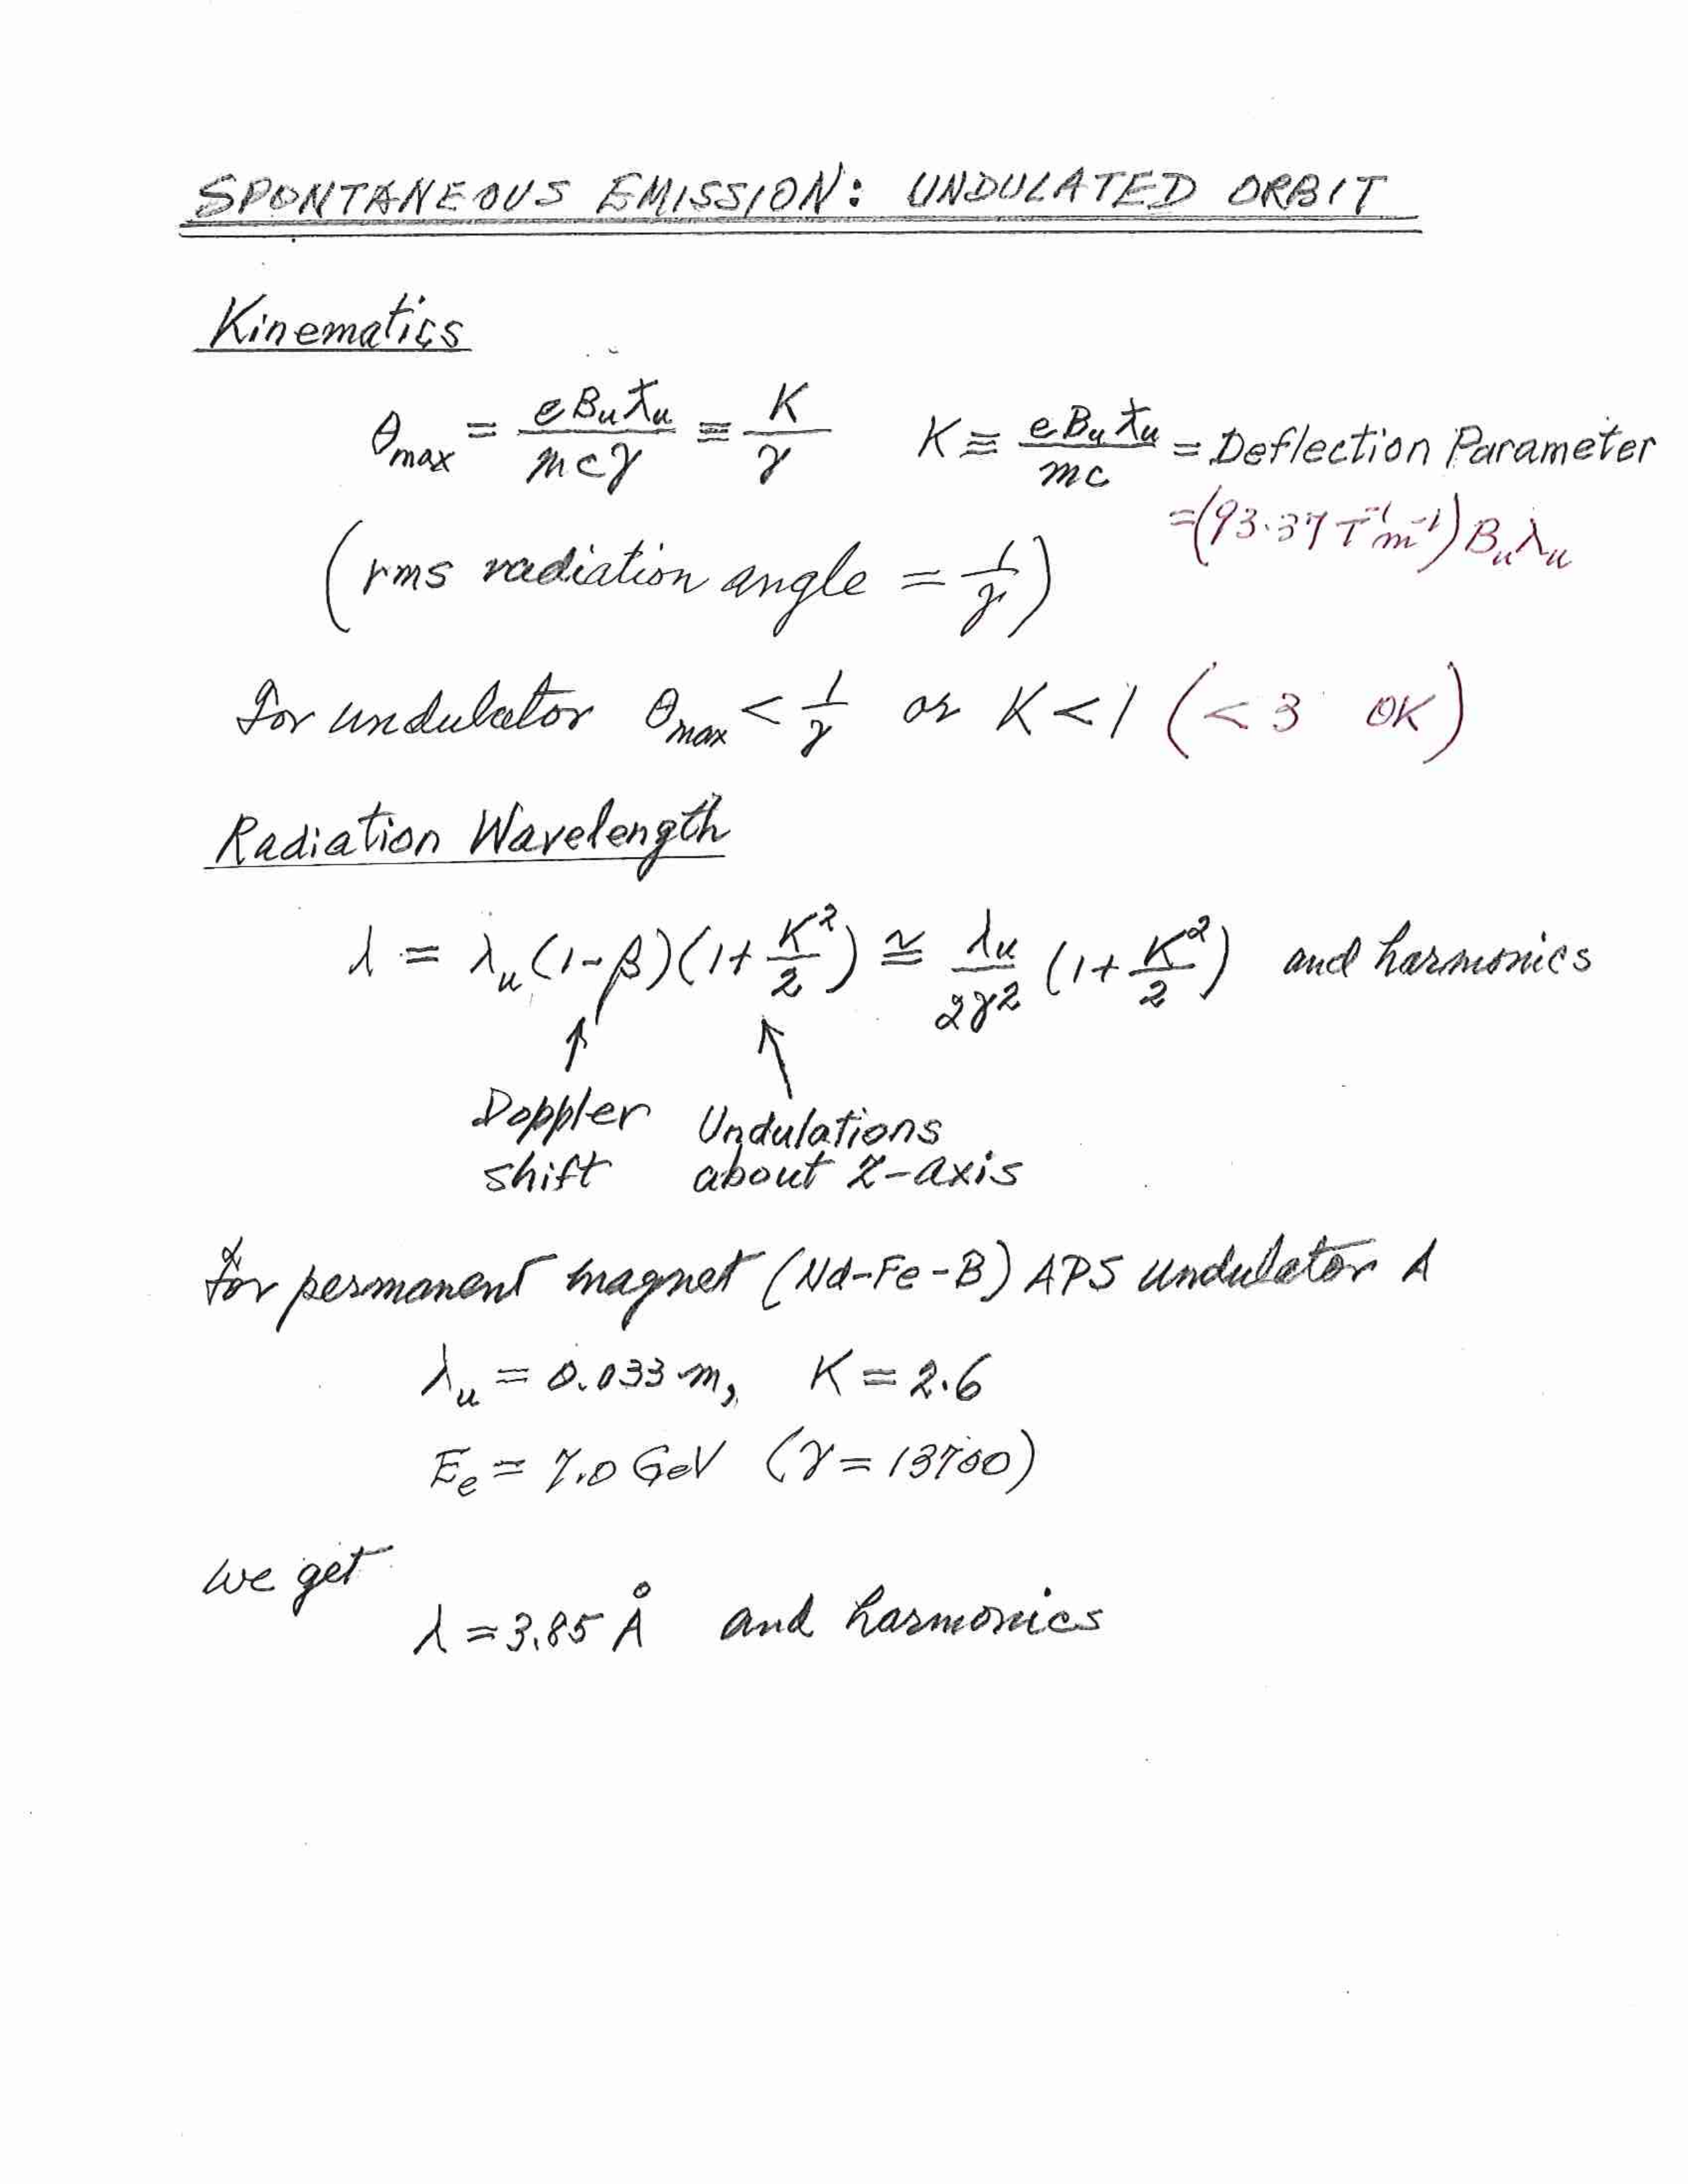 SPONTANEOUS EMISSION: UNDULATED ORBIT
Kinematics
θmax = eBuƛu / mcγ ≡ K/γ   K ≡ eBuƛu / mc = Deflection Parameter
=(93.37 T⁻¹m⁻¹) Buλu
(rms radiation angle = 1/γ)
For undulator θmax < 1/γ or K < 1 (< 3 OK)
Radiation Wavelength
λ = λu (1-β)(1+ K²/2) ≅ λu/2γ² (1+ K²/2) and harmonics
↑ ↖
Doppler Undulations
shift about z-axis
For permanent magnet (Nd-Fe-B) APS undulator A
λu = 0.033 m, K = 2.6
Ee = 7.0 GeV (γ = 13700)
we get
λ = 3.85 Å and harmonics